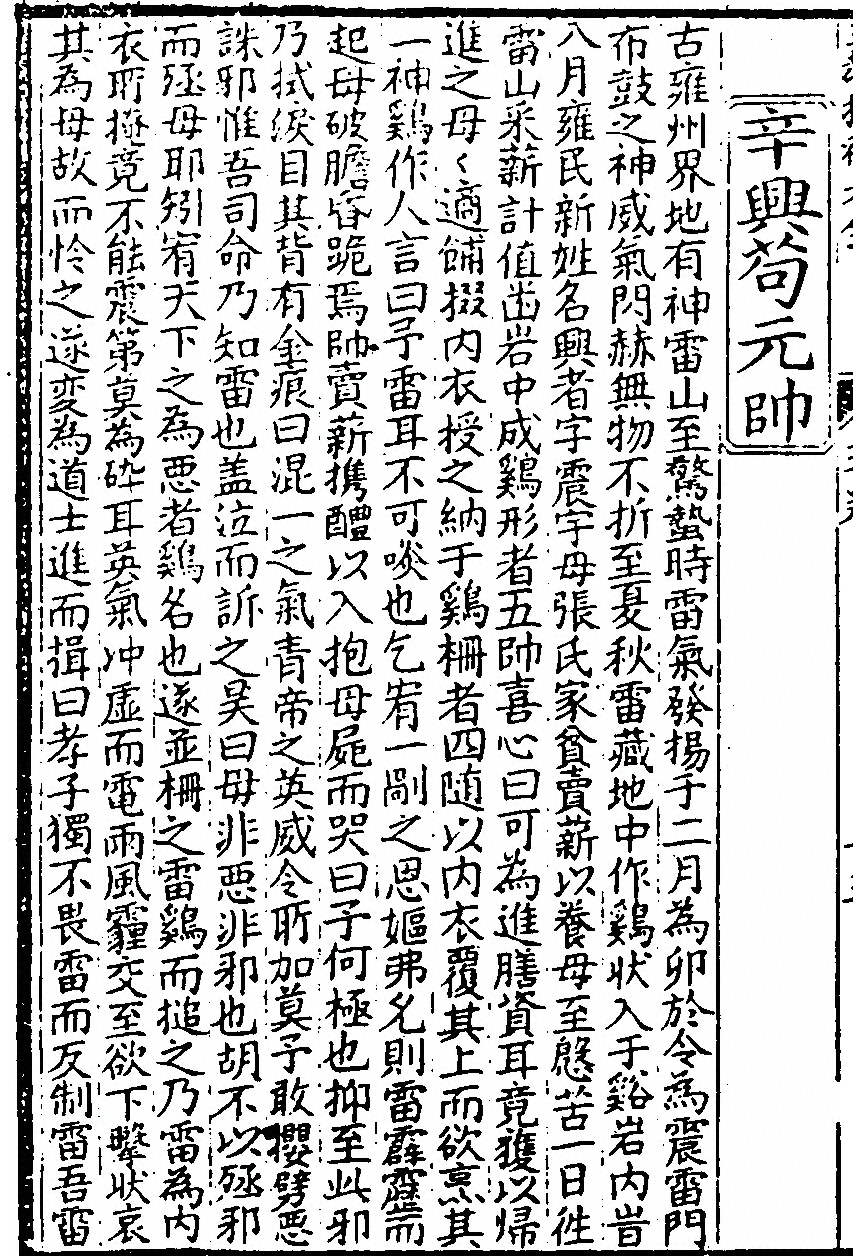 辛興苟元帥
古雍州界地有神雷山至驚蟄時雷氣發揚于二月為卯於令為震雷門
布鼓之神威氣閃赫無物不折至夏秋雷藏地中作鷄狀入于谿岩内旹
八月雍民新姓名興者字震宇母張氏家貧賣薪以養母至慇苦一日徃
雷山采薪計值凿岩中成鷄形者五帥喜心曰可為進膳資耳竟獲以帰
進之母々適餔掇内衣授之納于鷄栅者四随以内衣覆其上而欲烹其
一神鷄作人言曰予雷耳不可啖也乞宥一剮之恩嫗弗允則雷霹靂而
起母破膽昏跪焉帥賣薪携醴以入抱母屍而哭曰予何極也抑至此邪
乃拭淚目其背有金痕曰混一之氣青帝之英威令所加莫予敢攖劈惡
誅邪惟吾司命乃知雷也盖泣而訴之昊曰母非惡非邪也胡不以殛邪
而殛母耶矧宥天下之為惡者鷄名也遂並栅之雷鷄而搥之乃雷為内
衣所掩竟不能震第莫為砕耳英氣冲虛而電雨風霾交至欲下擊狀哀
其為母故而怜之遂变為道士進而揖曰孝子獨不畏雷而反制雷吾雷